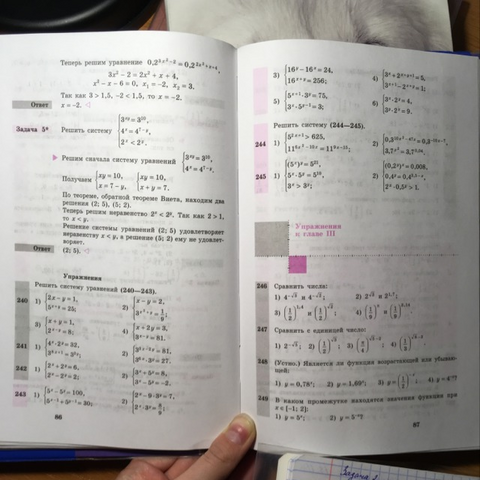 Теперь решим уравнение 0,2^{3x²−2} = 0,2^{2x²+x+4},
3x² − 2 = 2x² + x + 4,
x² − x − 6 = 0, x₁ = −2, x₂ = 3.
Так как 3 > 1,5, −2 < 1,5, то x = −2.
Ответ x = −2.
Задача 5* Решить систему { 3^{xy} = 3^{10}, 4^x = 4^{7−y}, 2^x < 2^y.
Решим сначала систему уравнений { 3^{xy} = 3^{10}, 4^x = 4^{7−y}.
Получаем { xy = 10, x = 7 − y, { xy = 10, x + y = 7.
По теореме, обратной теореме Виета, находим два
решения (2; 5), (5; 2).
Теперь решим неравенство 2^x < 2^y. Так как 2 > 1,
то x < y.
Решение системы уравнений (2; 5) удовлетворяет
неравенству x < y, а решение (5; 2) ему не удовлет-
воряет.
Ответ (2; 5).
Упражнения
Решить систему уравнений (240—243).
240 1) { 2x − y = 1, 5^{x+y} = 25; 2) { x − y = 2,
3) { x + y = 1, 4) { x + 2y = 3,
241 1) { 4^x · 2^y = 32, 2)
242 1) { 2^x + 2^y = 6, 2^x − 2^y = 2; 2) { 3^x + 5^y = 8, 3^x − 5^y = −2.
243 1) { 5^x − 5^y = 100, 5^{x−1} + 5^{y−1} = 30; 2) { 2^x − 9 · 3^y = 7, 2^x · 3^y = 8/9;
86
3) { 16^y − 16^x = 24, 16^{x+y} = 256; 4) { 3^x + 2^{x+y+1} = 5,
5) { 5^{x+1} · 3^y = 75, 3^x · 5^{y−1} = 3; 6) { 3^x · 2^y = 4, 3^y · 2^x = 9.
Решить систему (244—245).
244 1) { 5^{2x+1} > 625, 2)
245 1) { (5^x)^y = 5^{21}, 5^x · 5^y = 5^{10}, 3^x > 3^y; 2) { (0,2^y)^x = 0,008,
Упражнения
к главе III
246 Сравнить числа:
1) 4^{−√3} и 4^{−√2}; 2) 2^{√3} и 2^{1,7};
3) 4)
247 Сравнить с единицей число:
1) 2^{−√5}; 2) 3) 4)
248 (Устно.) Является ли функция возрастающей или убываю-
щей:
1) y = 0,78^x; 2) y = 1,69^x; 3) y = (1/2)^{−x}; 4) y = 4^{−x}?
249 В каком промежутке находятся значения функции при
x ∈ [−1; 2]:
1) y = 5^x; 2) y = 5^{−x}?
87